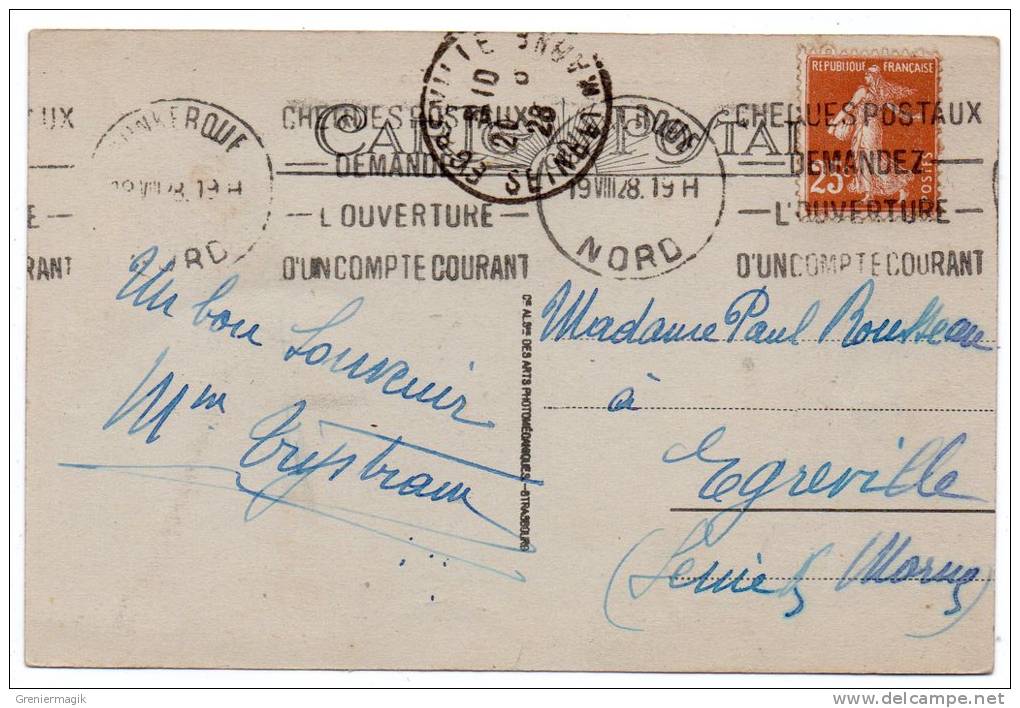 CARTE POSTALE
RÉPUBLIQUE FRANÇAISE
25c
POSTES
DUNKERQUE
19 VIII 28. 19 H
NORD
CHEQUES POSTAUX
DEMANDEZ
— L'OUVERTURE —
D'UN COMPTE COURANT
EGREVILLE
SEINE ET MARNE
28
19 VIII 28. 19 H
NORD
CHEQUES POSTAUX
DEMANDEZ
— L'OUVERTURE —
D'UN COMPTE COURANT
Un bon
Souvenir
Mme Trystram
Cie ALSnne DES ARTS PHOTOMÉCANIQUES — STRASBOURG
Madame Paul Rousseau
à
Egreville
(Seine & Marne)
Greniermagik
delcampe.net